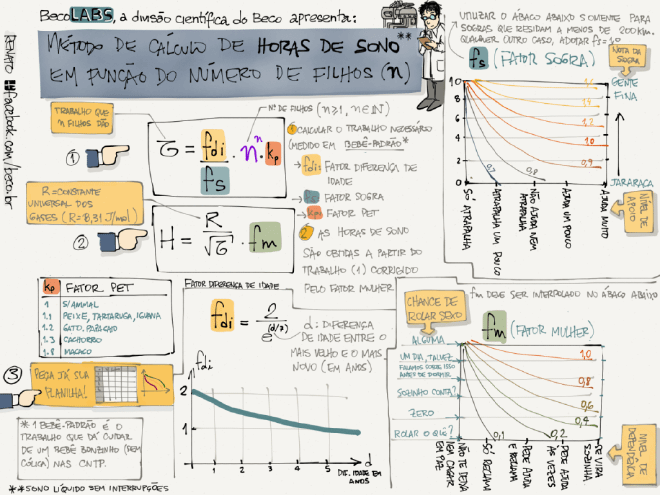 BecoLABS, a divisão científica do Beco apresenta:
MÉTODO DE CÁLCULO DE HORAS DE SONO**
EM FUNÇÃO DO NÚMERO DE FILHOS (n)
RENATO facebook.com/beco.br
TRABALHO QUE
n FILHOS DÃO
1
G = fdi/fs · n^n · kp
Nº DE FILHOS (n≥1, n∈ℕ)
1 CALCULAR O TRABALHO NECESSÁRIO
(MEDIDO EM BEBÊ-PADRÃO*)
→ fdi FATOR DIFERENÇA DE
IDADE
→ fs FATOR SOGRA
→ kp FATOR PET
2 AS HORAS DE SONO
SÃO OBTIDAS A PARTIR DO
TRABALHO (1) CORRIGIDO
PELO FATOR MULHER
R = CONSTANTE
UNIVERSAL DOS
GASES (R=8,31 J/mol)
2
H = R/√G · fm
kp FATOR PET
1 S/ANIMAL
1.1 PEIXE, TARTARUGA, IGUANA
1.2 GATO, PÁSSARO
1.3 CACHORRO
1.8 MACACO
3
PEÇA JÁ SUA
PLANILHA!
* 1 BEBÊ-PADRÃO É O
TRABALHO QUE DÁ CUIDAR
DE UM BEBÊ BONZINHO (SEM
CÓLICA) NAS CNTP.
**SONO LÍQUIDO SEM INTERRUPÇÕES
FATOR DIFERENÇA DE IDADE
fdi = 2/e^(d/7)
d: DIFERENÇA
DE IDADE ENTRE O
MAIS VELHO E O MAIS
NOVO (EM ANOS)
fdi
2
1
1 2 3 4 5 6 d
DIF. IDADE EM
ANOS
UTILIZAR O ÁBACO ABAIXO SOMENTE PARA
SOGRAS QUE RESIDAM A MENOS DE 200KM.
QUALQUER OUTRO CASO, ADOTAR fs=1.0
fs (FATOR SOGRA)
NOTA DA
SOGRA
GENTE
FINA
JARARACA
NÍVEL DE
APOIO
10
8
6
4
2
0
1.2
1.0
0.9
0.7
0.8
SÓ
ATRAPALHA
ATRAPALHA UM
POUCO
NÃO AJUDA NEM
ATRAPALHA
AJUDA UM POUCO
AJUDA MUITO
fm DEVE SER INTERPOLADO NO ÁBACO ABAIXO
CHANCE DE
ROLAR SEXO
fm (FATOR MULHER)
ALGUMA
UM DIA, TALVEZ
FALAMOS SOBRE ISSO
ANTES DE DORMIR
SOZINHO CONTA?
ZERO
ROLAR O QUÊ?
1,0
0,8
0,6
0,4
0,2
0,1
NÃO TE DEIXA
NEM CAGAR
EM PAZ
SÓ RECLAMA
PEDE AJUDA
E RECLAMA
PEDE AJUDA
ÀS VEZES
SE VIRA
SOZINHA
NÍVEL DE
DEPENDÊNCIA